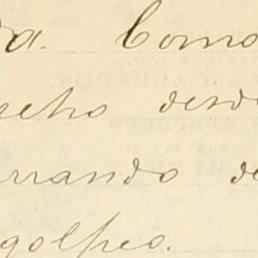 da. Como
echo desd
rrando de
golpeo.